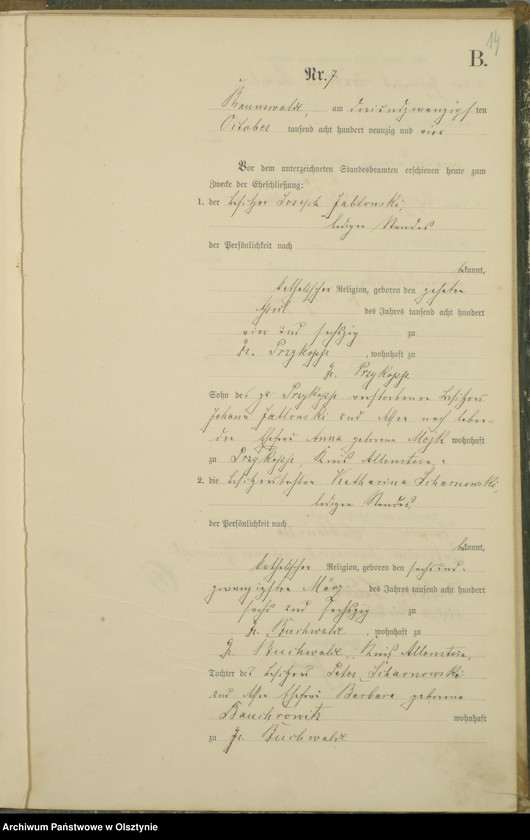 14
B.
Nr. 7
Braunswalde, am dreiundzwanzigsten
October tausend acht hundert neunzig und vier
Vor dem unterzeichneten Standesbeamten erschienen heute zum
Zwecke der Eheschließung:
1. der Besitzer Joseph Jablonski,
ledigen Standes
der Persönlichkeit nach
bekannt,
katholischer Religion, geboren den zehnten
April des Jahres tausend acht hundert
vier und sechszig zu
Gr. Przykopp, wohnhaft zu
Gr. Przykopp
Sohn des zu Przykopp verstorbenen Besitzers
Johann Jablonski und dessen noch leben-
den Ehefrau Anna geborene wohnhaft
zu Przykopp, Kreis Allenstein.
2. die Besitzertochter Katharina Scharnowski,
ledigen Standes,
der Persönlichkeit nach
bekannt,
katholischer Religion, geboren den sechsund-
zwanzigsten März des Jahres tausend acht hundert
sechs und sechszig zu
Gr. Buchwalde, wohnhaft zu
Gr. Buchwalde, Kreis Allenstein,
Tochter des Besitzers Peter Scharnowski
und Ehefrau Barbara geborene
wohnhaft
zu Gr. Buchwalde
Archiwum Państwowe w Olsztynie